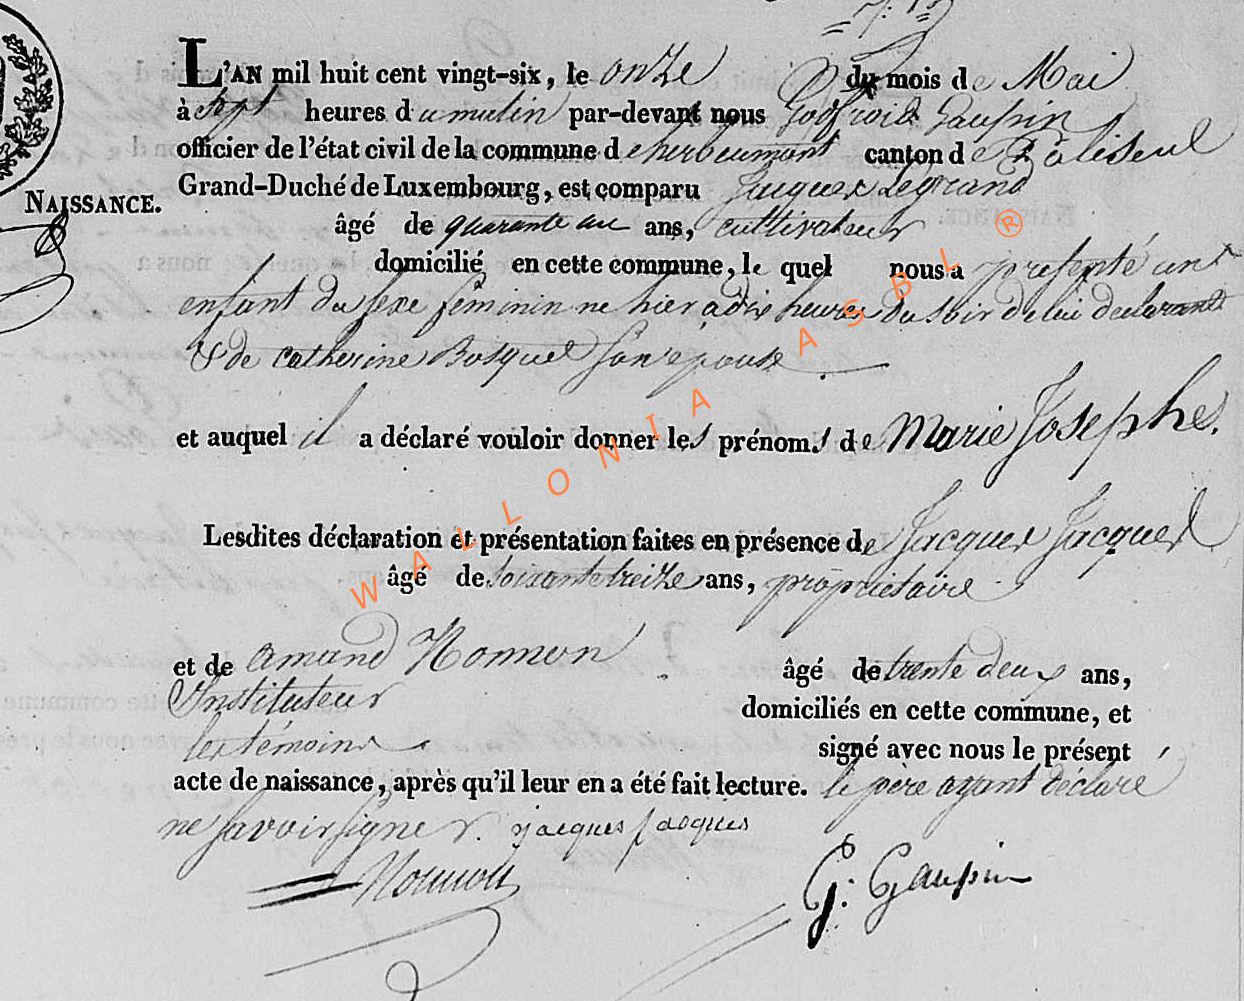 L'AN mil huit cent vingt-six, le onze du mois de Mai
à sept heures du matin par-devant nous Godfroid Gaupin
officier de l'état civil de la commune de herbeumont canton de Paliseul
Grand-Duché de Luxembourg, est comparu Jacques Legrand
NAISSANCE.
âgé de quarante un ans, cultivateur
domicilié en cette commune, le quel nous a présenté un
enfant du sexe féminin ne hier a dix heures du soir de lui declarant
& de catherine Bosquet son epouse
et auquel il a déclaré vouloir donner les prénoms de Marie Josephe.
Lesdites déclaration et présentation faites en présence de Jacques Jacques
âgé de soixante treize ans, propriétaire
et de amand Nonnon âgé de trente deux ans,
Instituteur domiciliés en cette commune, et
les témoins signé avec nous le présent
acte de naissance, après qu'il leur en a été fait lecture. le père ayant déclaré
ne savoir signer. jacques jacques
Nonnon G: Gaupin
WALLONIA ASBL ®